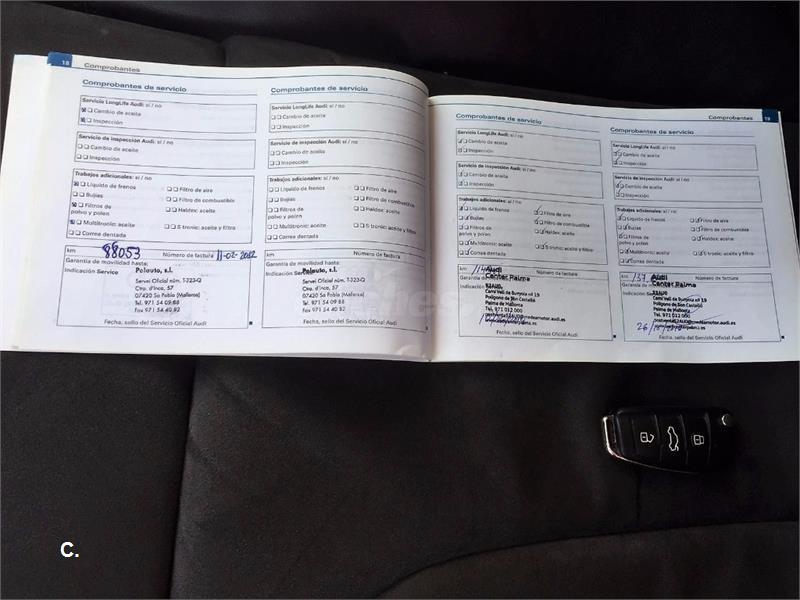 18 Comprobantes
Comprobantes de servicio
Servicio LongLife Audi: sí / no
Cambio de aceite
Inspección
Servicio de inspección Audi: sí / no
Cambio de aceite
Inspección
Trabajos adicionales: sí / no
Líquido de frenos
Filtro de aire
Bujías
Filtro de combustible
Filtros de
polvo y polen
Haldex: aceite
Multitronic: aceite
S tronic: aceite y filtro
Correa dentada
km 88053 Número de factura 11-02-2012
Garantía de movilidad hasta:
Indicación Service
Palauto, s.l.
Servei Oficial núm. 1-323-Q
Ctra. d'Inca, 57
07420 Sa Pobla (Mallorca)
Tel. 971 54 09 88
Fax 971 54 40 92
Fecha, sello del Servicio Oficial Audi
Comprobantes de servicio
Servicio LongLife Audi: sí / no
Cambio de aceite
Inspección
Servicio de inspección Audi: sí / no
Cambio de aceite
Inspección
Trabajos adicionales: sí / no
Líquido de frenos
Filtro de aire
Bujías
Filtro de combustible
Filtros de
polvo y polen
Haldex: aceite
Multitronic: aceite
S tronic: aceite y filtro
Correa dentada
km Número de factura
Garantía de movilidad hasta:
Indicación Service
Palauto, s.l.
Servei Oficial núm. 1-323-Q
Ctra. d'Inca, 57
07420 Sa Pobla (Mallorca)
Tel. 971 54 09 88
Fax 971 54 40 92
Fecha, sello del Servicio Oficial Audi
Comprobantes 19
Comprobantes de servicio
Servicio LongLife Audi: sí / no
Cambio de aceite
Inspección
Servicio de inspección Audi: sí / no
Cambio de aceite
Inspección
Trabajos adicionales: sí / no
Líquido de frenos
Filtro de aire
Bujías
Filtro de combustible
Filtros de
polvo y polen
Haldex: aceite
Multitronic: aceite
S tronic: aceite y filtro
Correa dentada
km Número de factura
Garantía de movilidad
Indicación
Audi
Center Palma
Camí Vell de Bunyola nº 19
Polígono de Son Castelló
Palma de Mallorca
Tel. 971 012 000
Fecha, sello del Servicio Oficial Audi
Comprobantes de servicio
Servicio LongLife Audi: sí / no
Cambio de aceite
Inspección
Servicio de inspección Audi: sí / no
Cambio de aceite
Inspección
Trabajos adicionales: sí / no
Líquido de frenos
Filtro de aire
Bujías
Filtro de combustible
Filtros de
polvo y polen
Haldex: aceite
Multitronic: aceite
S tronic: aceite y filtro
Correa dentada
km Número de factura
Garantía de
Indicación
Audi
Center Palma
Camí Vell de Bunyola nº 19
Polígono de Son Castelló
Palma de Mallorca
Tel. 971 012 000
Fecha, sello del Servicio Oficial Audi
C.